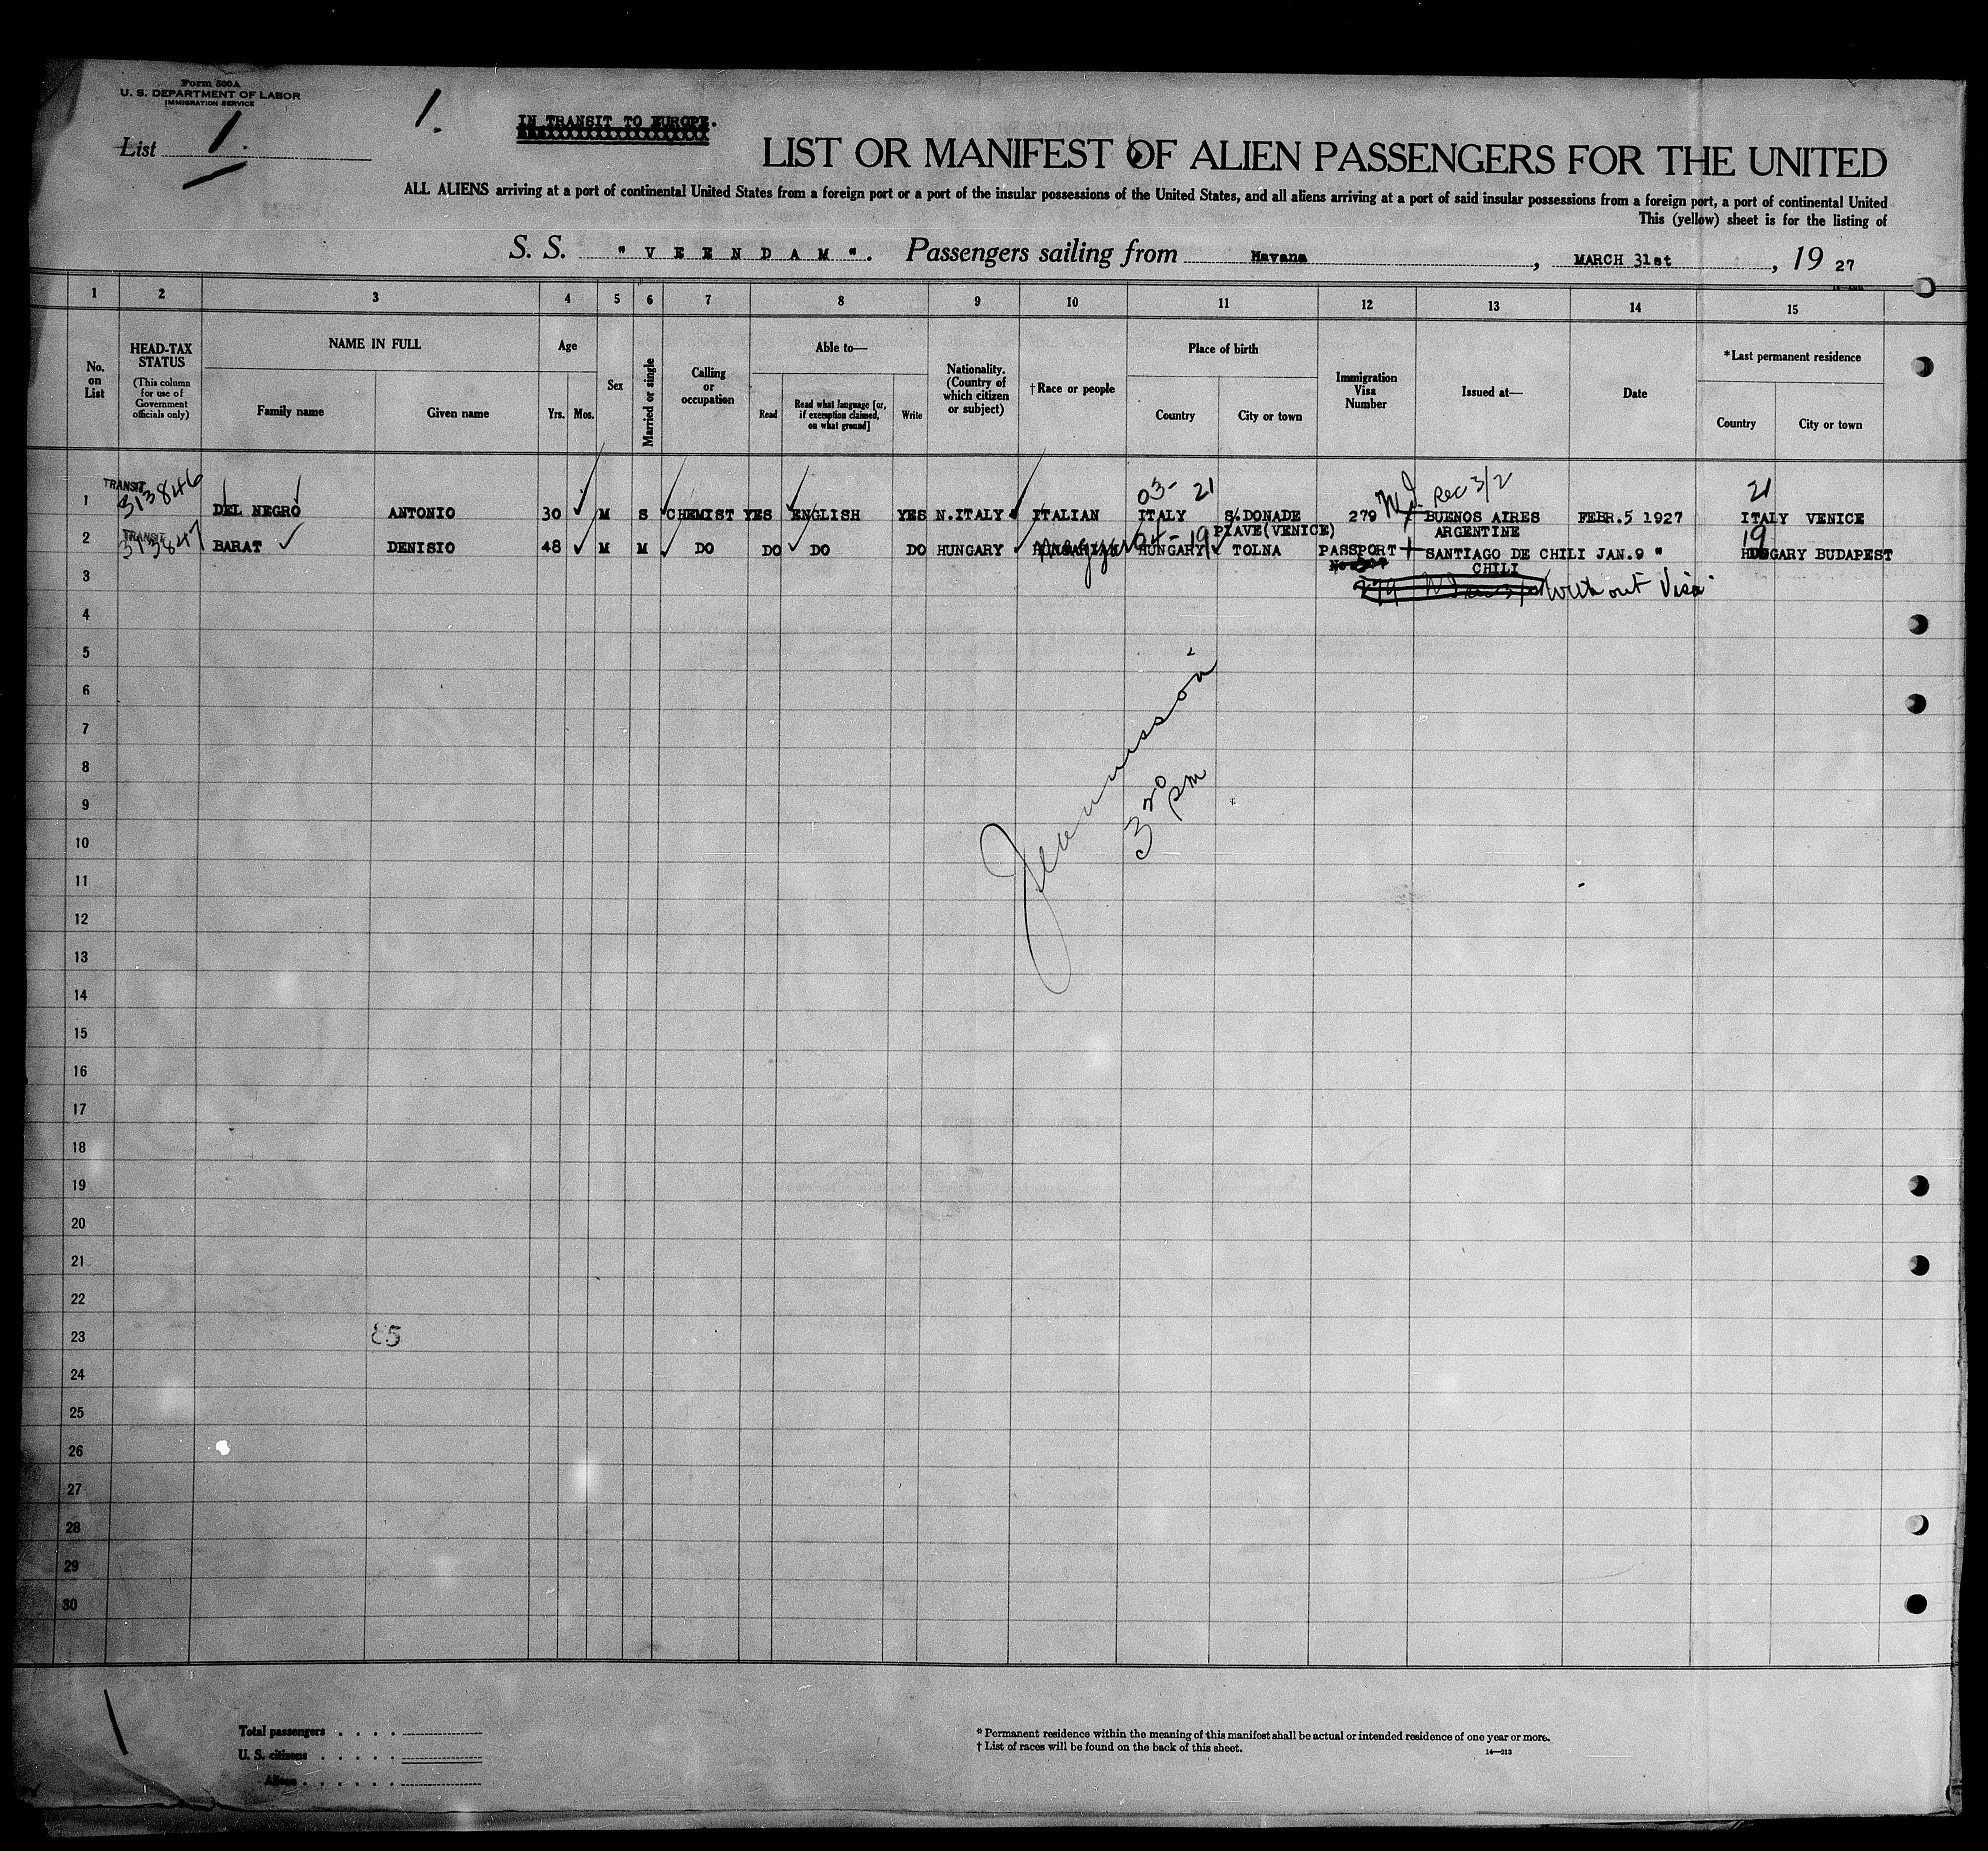 Form 500A
U. S. DEPARTMENT OF LABOR
IMMIGRATION SERVICE
List 1.
1.
IN TRANSIT TO EUROPE.
LIST OR MANIFEST OF ALIEN PASSENGERS FOR THE UNITED
ALL ALIENS arriving at a port of continental United States from a foreign port or a port of the insular possessions of the United States, and all aliens arriving at a port of said insular possessions from a foreign port, a port of continental United
This (yellow) sheet is for the listing of
S. S. "VEENDAM". Passengers sailing from Havana, MARCH 31st, 1927
1 2 3 4 5 6 7 8 9 10 11 12 13 14 15
No. on List
HEAD-TAX STATUS
(This column for use of Government officials only)
NAME IN FULL
Family name
Given name
Age
Yrs. Mos.
Sex
Married or single
Calling or occupation
Able to—
Read
Read what language [or, if exemption claimed, on what ground]
Write
Nationality. (Country of which citizen or subject)
†Race or people
Place of birth
Country
City or town
Immigration Visa Number
Issued at—
Date
*Last permanent residence
Country
City or town
03- 21 Rec 3/2 21
1 TRANSIT 313846 DEL NEGRO ANTONIO 30 M S CHEMIST YES ENGLISH YES N.ITALY ITALIAN ITALY S.DONADE 279 BUENOS AIRES FEBR.5 1927 ITALY VENICE
PIAVE(VENICE) ARGENTINE
2 TRANSIT 313847 BARAT DENISIO 48 M M DO DO DO DO HUNGARY Magyar 04-19 HUNGARY TOLNA PASSPORT SANTIAGO DE CHILI JAN.9 " 19 HUNGARY BUDAPEST
CHILI
3 Without Visa
4
5
6
7
8
9
10
11
12
13
14
15
16
17
18
19
20
21
22
23
24
25
26
27
28
29
30
3 20 pm
85
Total passengers
U. S. citizens
Aliens
* Permanent residence within the meaning of this manifest shall be actual or intended residence of one year or more.
† List of races will be found on the back of this sheet.
14—213